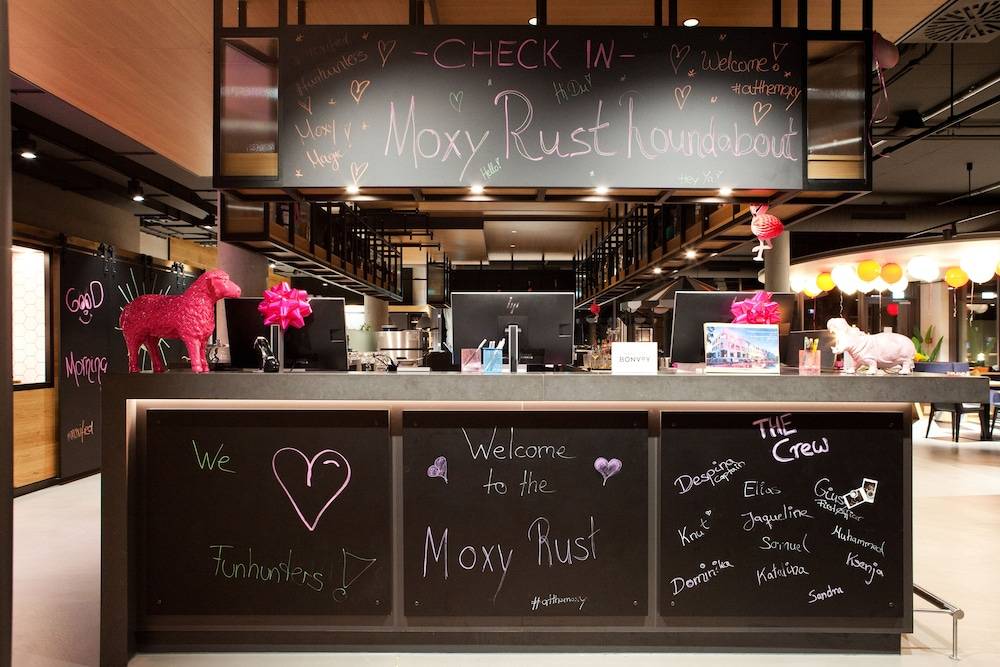 -CHECK IN-
#moxified
#funhunters
Moxy
Magic!
Hi Du!
Welcome!
#atthemoxy
Moxy Rust Roundabout
Hello!
Hey Ya!
GooD
Morning
#moxified
BONVOY
We
Funhunters!
Welcome
to the
Moxy Rust
#atthemoxy
THE
Crew
Despina
Captain
Elias
Gius
Knut
Jaqueline
Muhammad
Samuel
Ksenja
Dominika
Katalina
Sandra